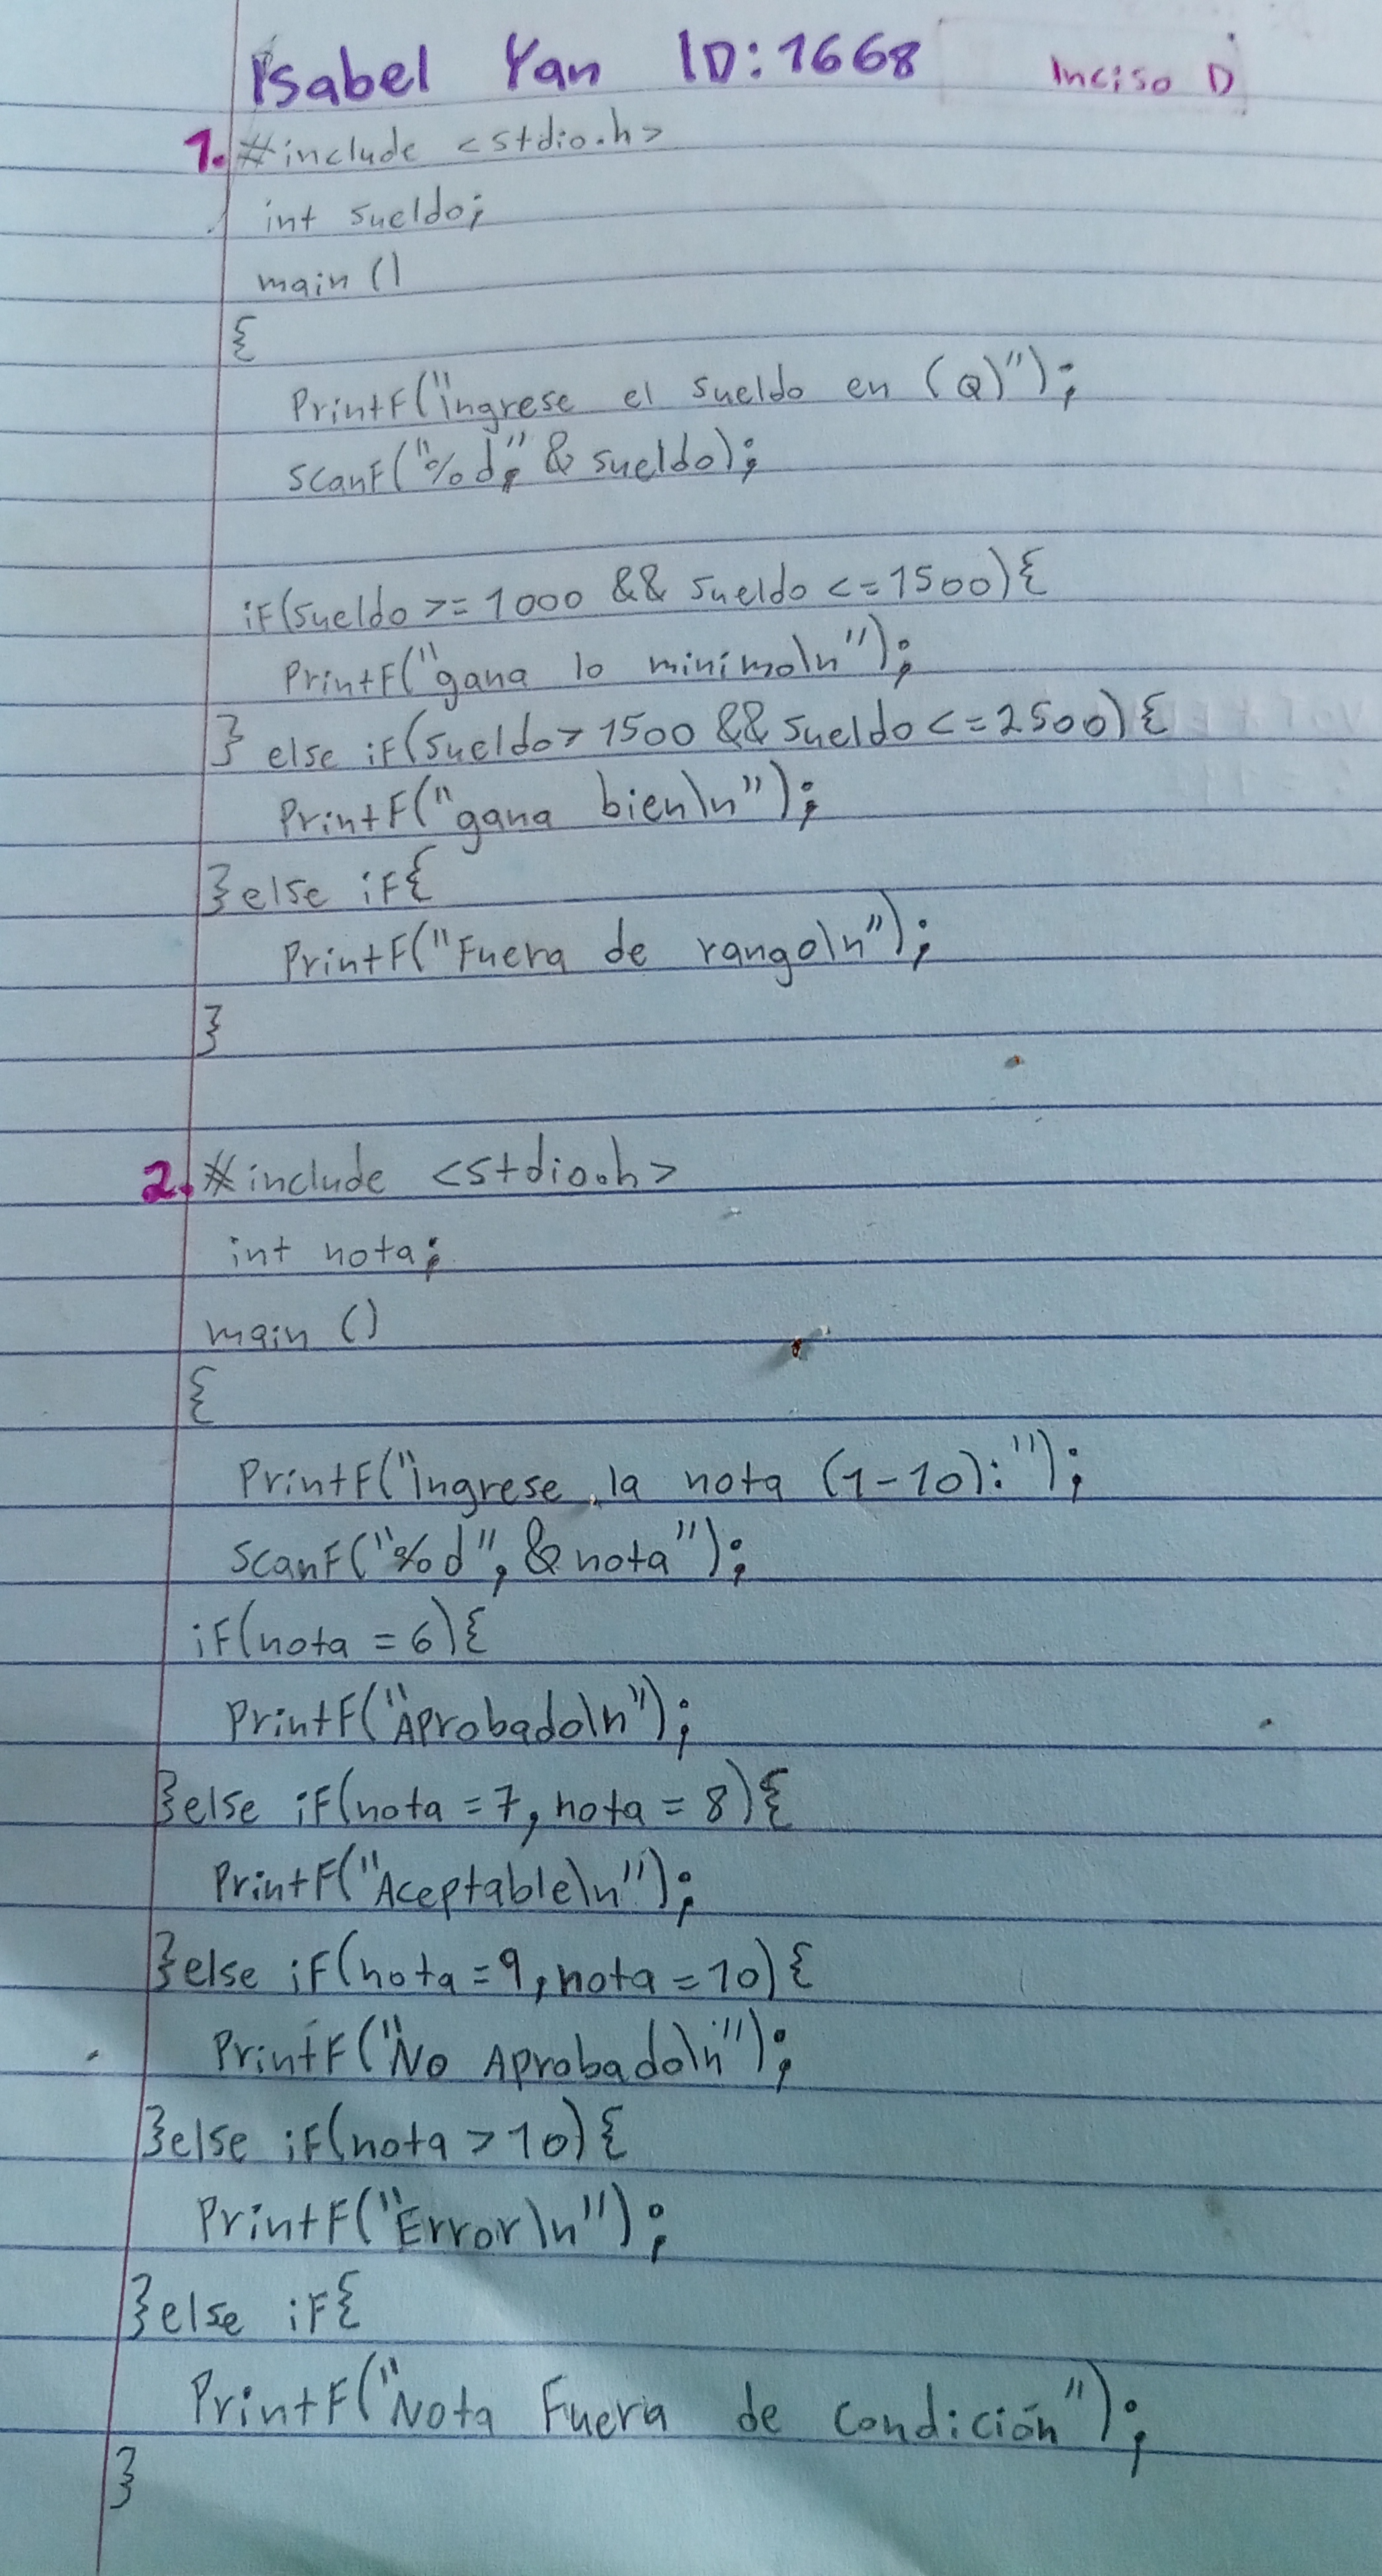 Isabel Yan ID:1668 Inciso D
1. #include <stdio.h>
int sueldo;
main ()
{
PrintF("ingrese el sueldo en (Q)");
scanF("%d," & sueldo);
iF(sueldo >= 1000 && sueldo <= 1500){
PrintF("gana lo minimo\n");
} else iF(sueldo > 1500 && sueldo <= 2500){
PrintF("gana bien\n");
}else iF{
PrintF("Fuera de rango\n");
}
2. #include <stdio.h>
int nota;
main ()
{
PrintF("ingrese la nota (1-10):");
scanF("%d", & nota");
iF(nota = 6){
PrintF("Aprobado\n");
}else iF(nota = 7, nota = 8){
PrintF("Aceptable\n");
}else iF(nota = 9, nota = 10){
PrintF("No Aprobado\n");
}else iF(nota > 10){
PrintF("Error\n");
}else iF{
PrintF("Nota Fuera de condición");
}